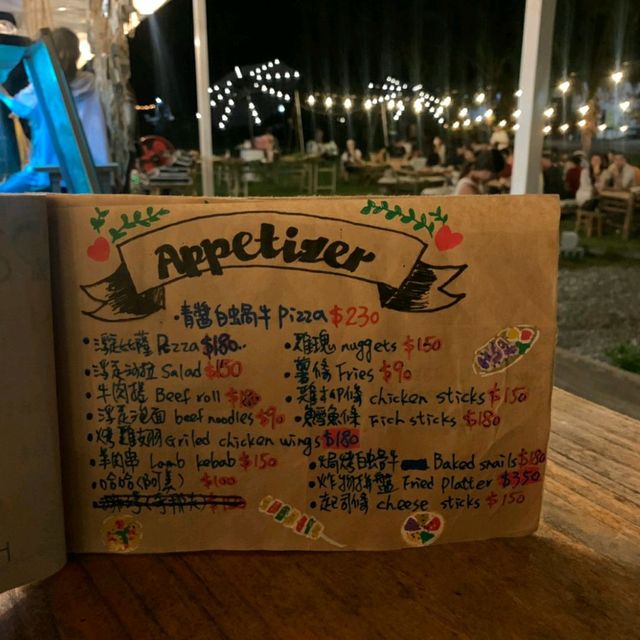 Appetizer
青醬白蝸牛 Pizza $230
Pizza $180
Salad $150
牛肉捲 Beef roll
泡麵 beef noodles $90
烤雞翅 Griled chicken wings $180
羊肉串 Lamb kebab $150
$100
雞塊 nuggets $150
薯條 Fries $90
雞柳條 chicken sticks $150
鱈魚條 Fich sticks $180
焗烤白蝸牛 Baked snails $180
炸物拼盤 Fried Platter $350
起司條 cheese sticks $150